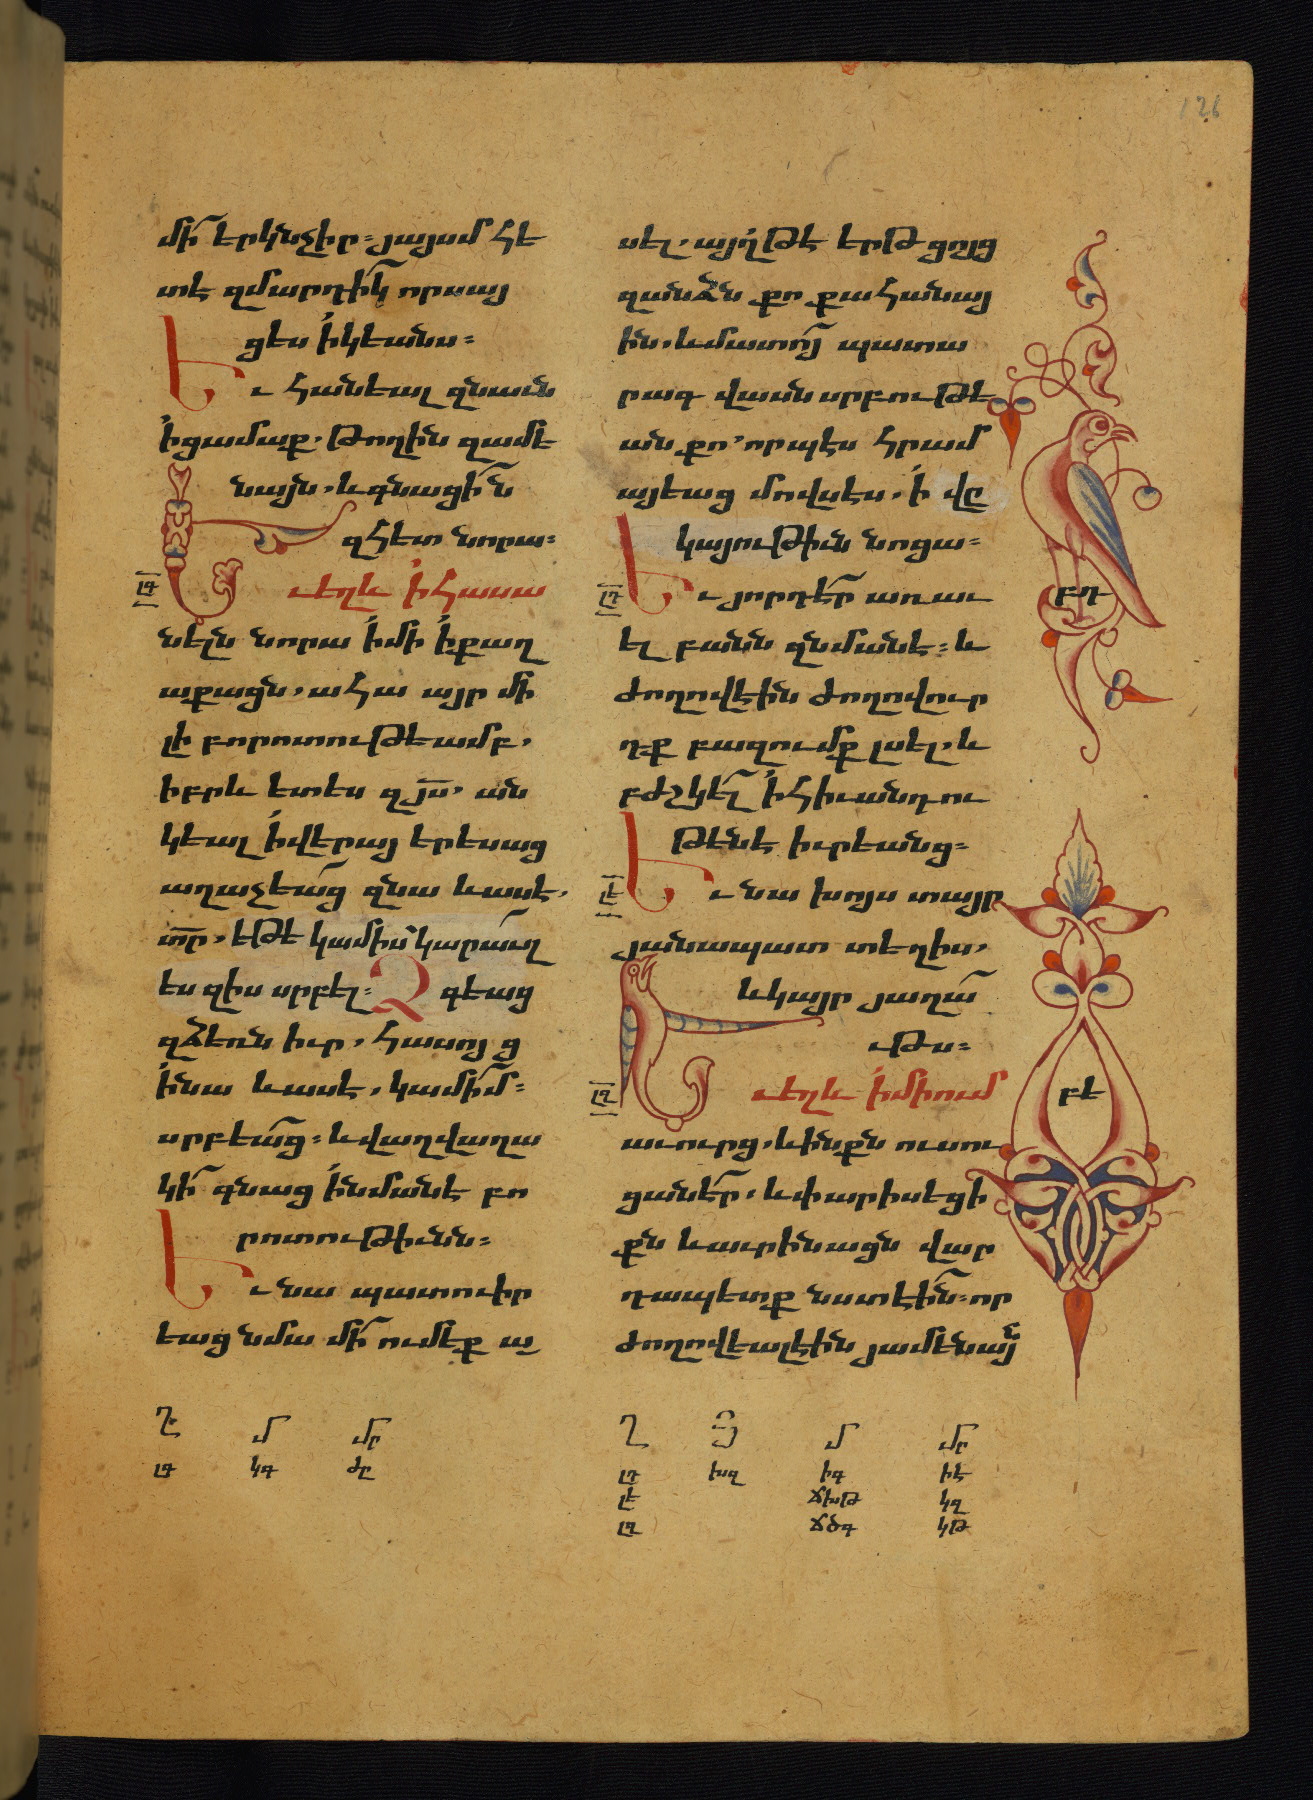 126
մի՛ երկնչիր. յայսմ հե
տէ զմարդիկ որսայ
ցես ի կեանս.
Ե
ւ հանեալ զնաւն
ի ցամաք. թողին զամե
նայն. և գնացին
զհետ նորա.
լգ
Ե
ւեղև ի հասա
նելն նորա ի մի ի քաղ
աքացն. ահա այր մի
լի բորոտութեամբ.
իբրև ետես զյս. ան
կեալ ի վերայ երեսաց
աղաչեաց զնա և ասէ.
տր. եթէ կամիս կարաւղ
ես զիս սրբել. Ձ գեաց
զձեռն իւր. հասոյց
ի նա և ասէ. կամիմ.
սրբեաց. և վաղվաղա
կի գնաց ի նմանէ բո
րոտութիւնն.
Ե
ւ նա պատուիր
եաց նմա մի ումեք ա
սել. այղ թէ երթ ցոյց
զանձն քո քահանայ
ին. և մատո պատա
րագ վասն սրբութե
ան քո. որպէս հրամ
այեաց մովսէս. ի վը
կայութիւն նոցա.
լդ
Ե
ւ յորդէր առաւ
ել բանն զնմանէ. և
ժողովէին ժողովուր
դք բազումք լսել. և
բժշկել ի հիւանդու
թենէ իւրեանց.
լե
Ե
ւ նա խոյս տայր
յանապատ տեղիս.
և կայր յաղա
ւթս.
լզ
Ե
ւեղև ի միում
աւուրց. և ինքն ուսու
ցանէր. և փարիսեցի
քն և աւրինացն վար
դապետք նստէին. որ
ժողովեալ էին յամենայն
բդ
բե
Ղ Մ Մը
լգ կգ ժը
Ղ Յ Մ Մը
լդ խզ իգ իէ
լե ճխթ կզ
լզ ճծգ կթ